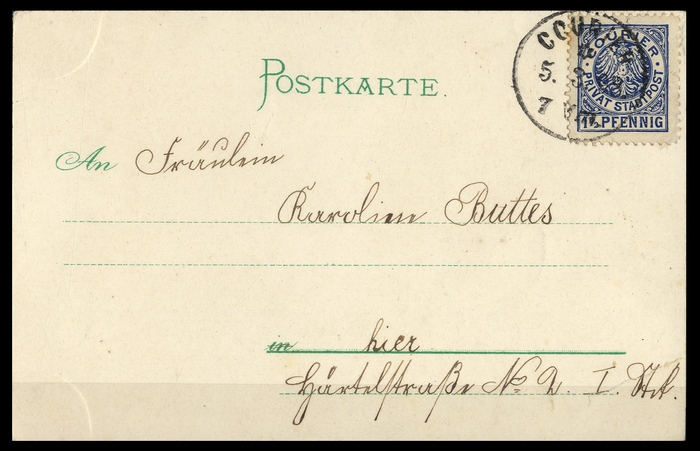 POSTKARTE.
COURIER
PRIVAT STADTPOST
1½ PFENNIG
COUR
5.
7
An Fräulein
Karolien Buttes
in hier
Härtelstraße No. 2. I. Stck.